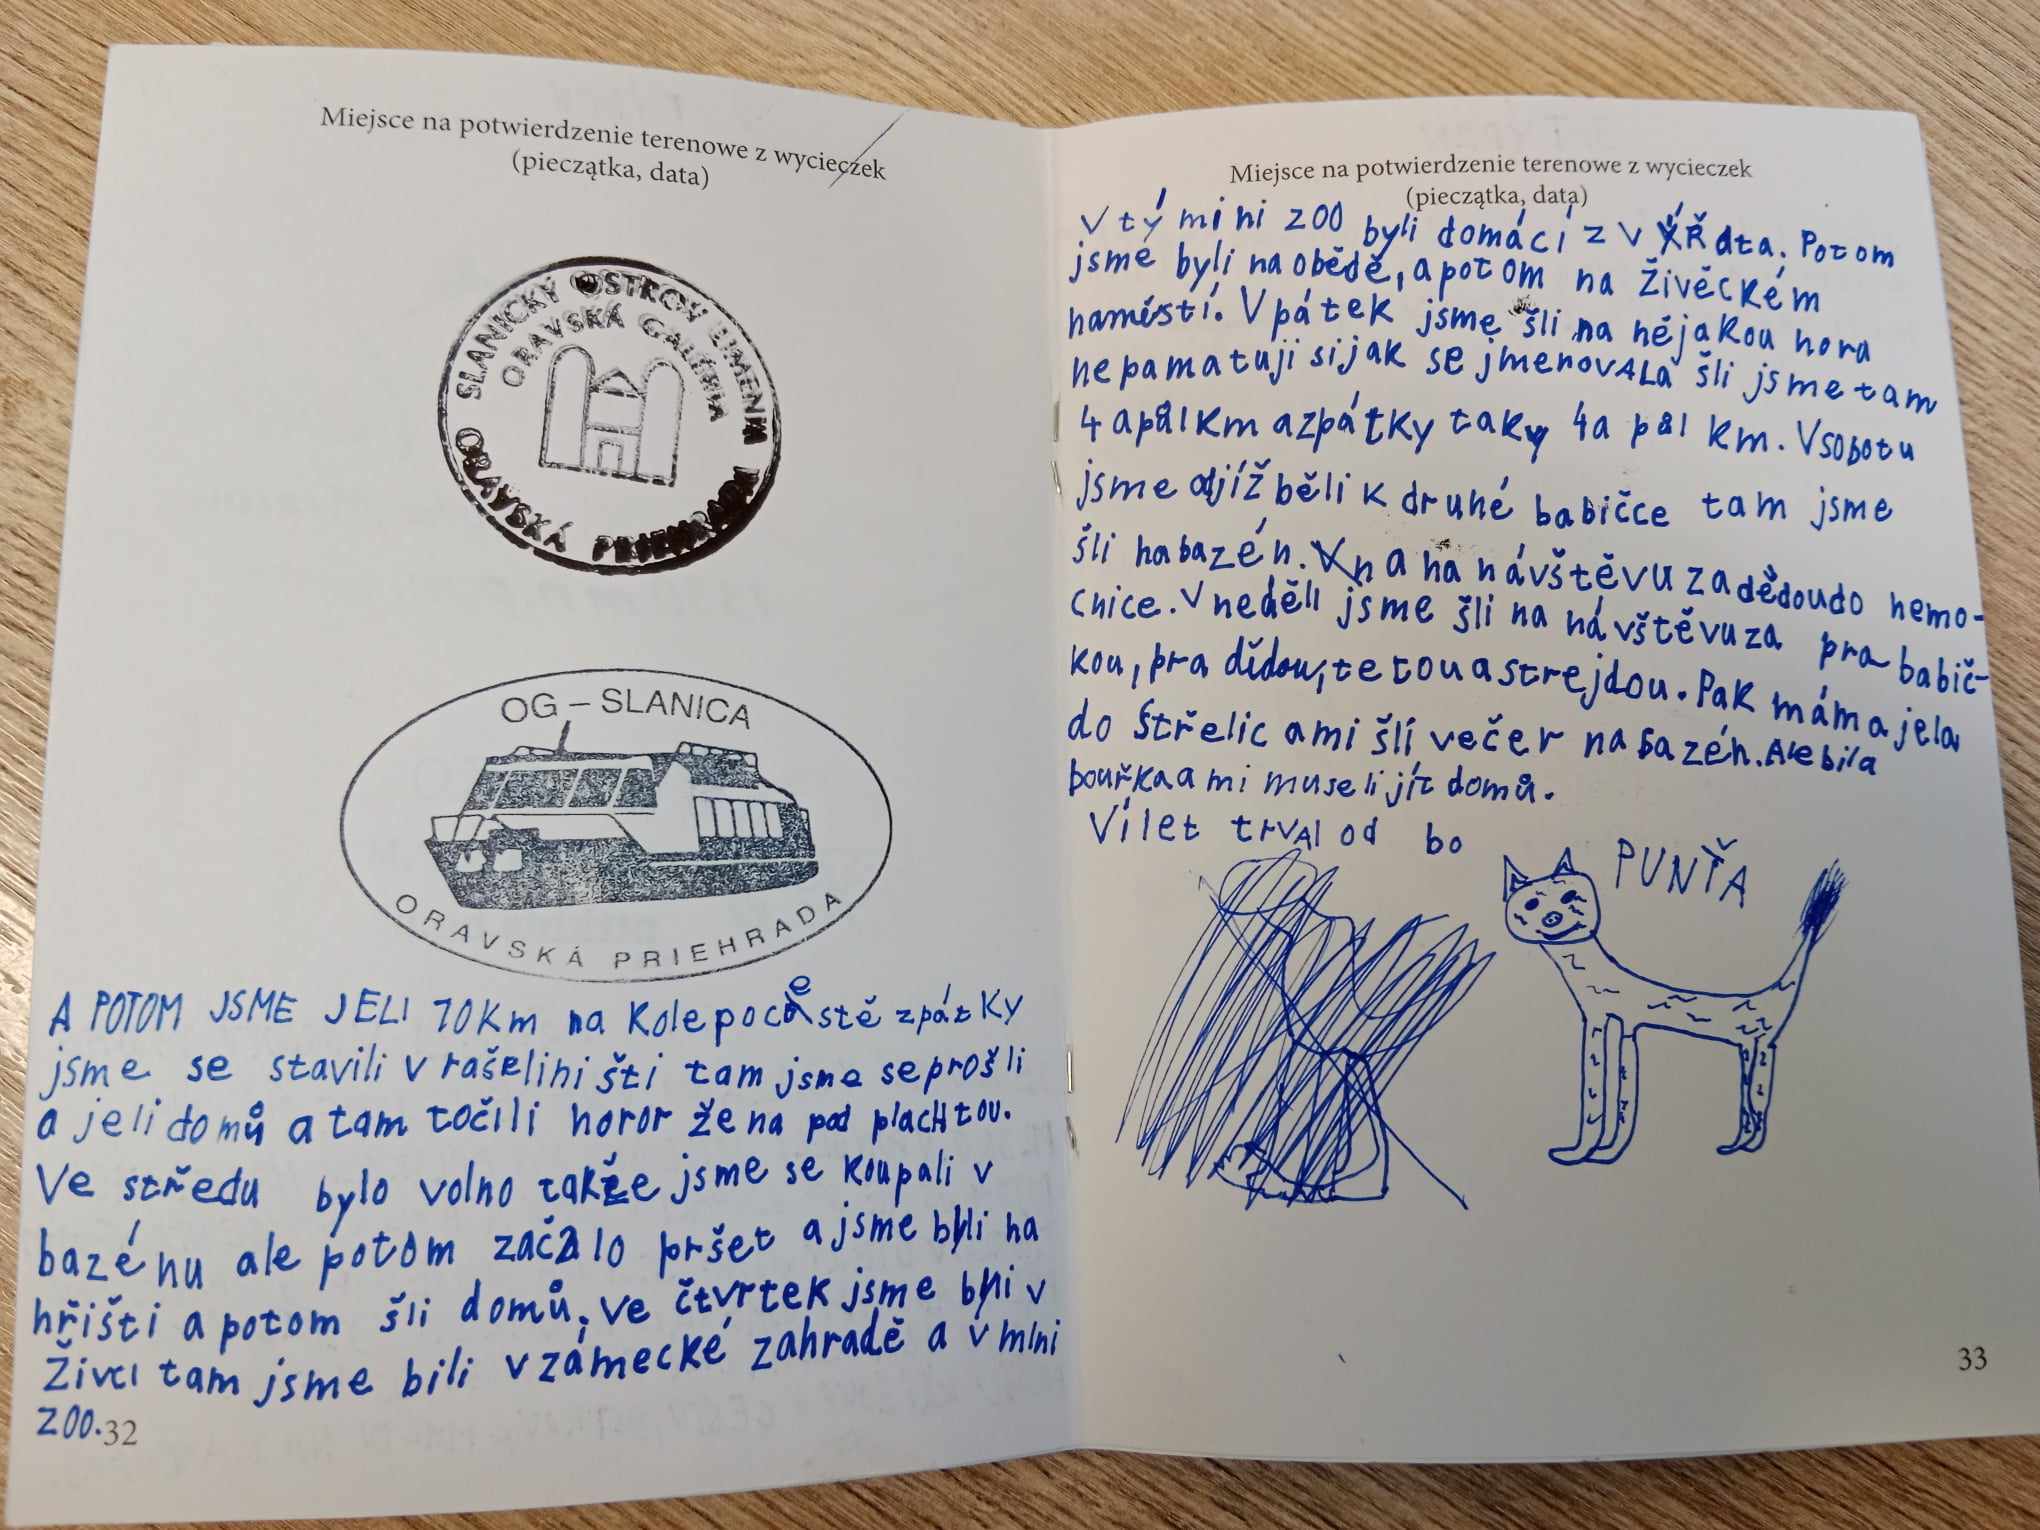 Miejsce na potwierdzenie terenowe z wycieczek
(pieczątka, data)
SLANICKÝ OSTROV UMENIA
ORAVSKÁ GALÉRIA
ORAVSKÁ PRIEHRADA
OG – SLANICA
ORAVSKÁ PRIEHRADA
A POTOM JSME JELI 70Km na Kole po cestě zpátky
jsme se stavili v rašeliništi tam jsme se prošli
a jeli domů a tam točili horor žena pod plachtou.
Ve středu bylo volno takže jsme se koupali v
bazénu ale potom začalo pršet a jsme byli na
hřišti a potom šli domů. ve čtvrtek jsme byli v
Živci tam jsme bili v zámecké zahradě a v mini
zoo.
32
Miejsce na potwierdzenie terenowe z wycieczek
(pieczątka, data)
V tý mini zoo byli domácí zvířata. Potom
jsme byli na obědě, a potom na Živěckém
naměstí. V pátek jsme šli na nějakou hora
nepamatuji si jak se jmenovala šli jsme tam
4 a půl km a zpátky taky 4 a půl km. V sobotu
jsme odjížběli k druhé babičce tam jsme
šli na bazén. na návštěvu za dědou do nemo-
cnice. V neděli jsme šli na návštěvu za pra babič-
kou, pra dídou, tetou a strejdou. Pak máma jela
do Střelic a mi šli večer na bazén. Ale bila
bouřka a mi museli jít domů.
Vílet trval od bo
PUNŤA
33